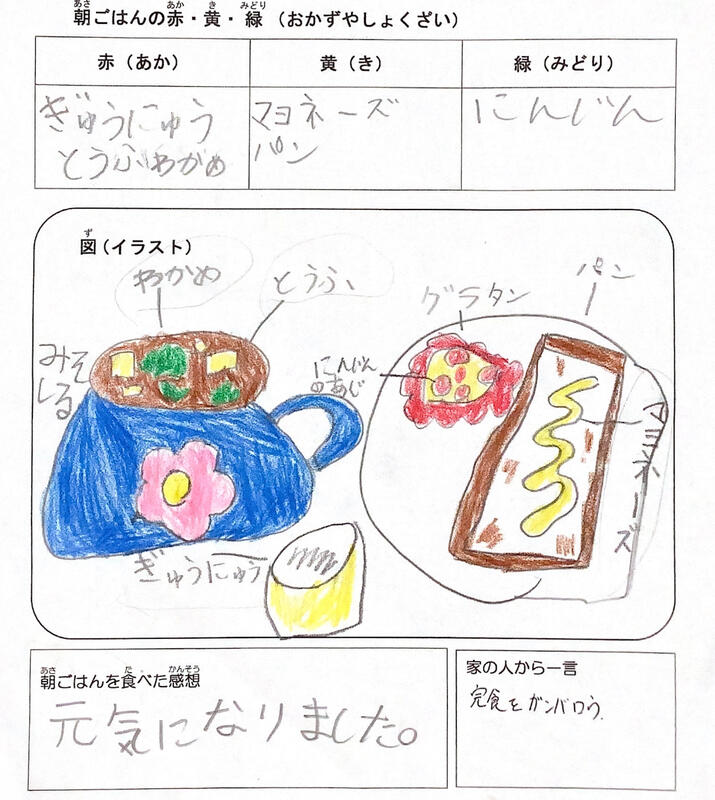 朝ごはんの赤・黄・緑（おかずやしょくざい）
赤（あか）
黄（き）
緑（みどり）
ぎゅうにゅう
とうふわかめ
マヨネーズ
パン
にんじん
図（イラスト）
わかめ
とうふ
みそしる
にんじんのあじ
グラタン
パン
マヨネーズ
ぎゅうにゅう
朝ごはんを食べた感想
元気になりました。
家の人から一言
完食をガンバロう.